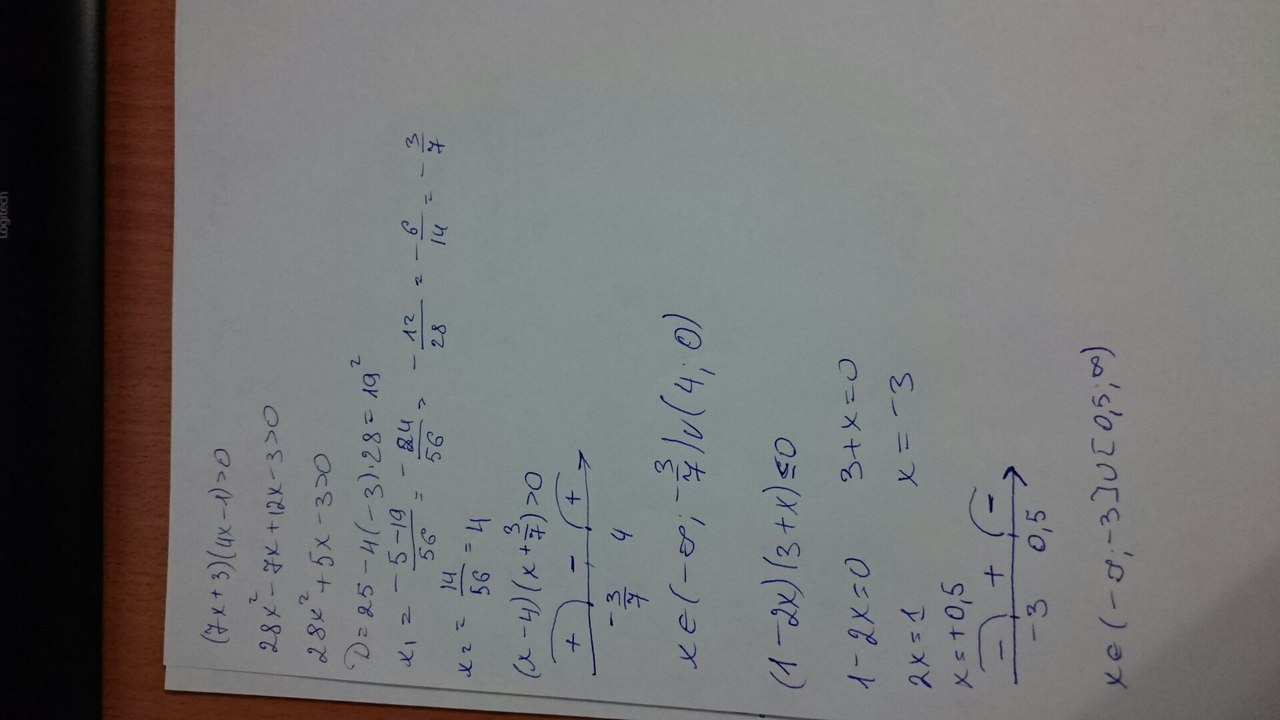 (7x+3)(4x-1)>0
28x²-7x+12x-3>0
28x²+5x-3>0
D=25-4(-3)·28=19²
x₁ = -5-19/56 = -24/56 = -12/28 = -6/14 = -3/7
x₂ = 14/56 = 4
(x-4)(x+3/7)>0
+ - +
-3/7 4
x∈(-∞;-3/7)∪(4;0)
(1-2x)(3+x)≤0
1-2x=0 3+x=0
2x=1 x=-3
x=+0,5
- + -
-3 0,5
x∈(-∞;-3]∪[0,5;∞)
Logitech